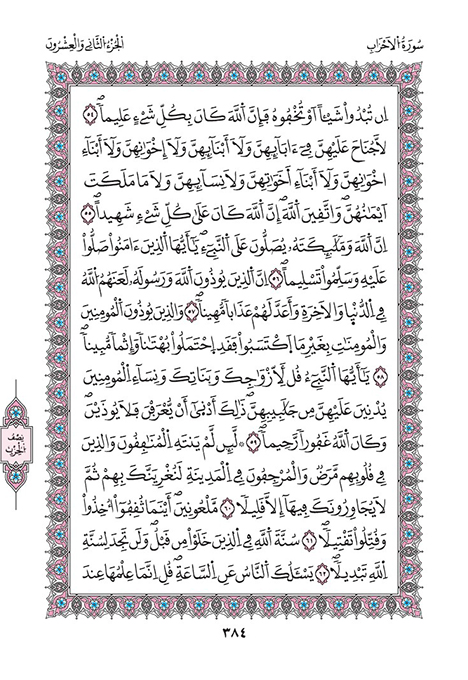 سُورَةُ الاَحْزَابِ
الْجُزْءُ الثَّانِي وَالْعِشْرُونَ
إِن تُبْدُواْ شَيْـًٔا اَوْ تُخْفُوهُ فَإِنَّ اَللَّهَ كَانَ بِكُلِّ شَےْءٍ عَلِيماً ٥٤
لَّا جُنَاحَ عَلَيْهِنَّ فِےٓ ءَابَآئِهِنَّ وَلَآ أَبْنَآئِهِنَّ وَلَآ إِخْوَٰنِهِنَّ وَلَآ أَبْنَآءِ
اِخْوَٰنِهِنَّ وَلَآ أَبْنَآءِ اَخَوَٰتِهِنَّ وَلَا نِسَآئِهِنَّ وَلَا مَا مَلَكَتَ
اَيْمَٰنُهُنَّ وَاتَّقِينَ اَللَّهَ إِنَّ اَللَّهَ كَانَ عَلَىٰ كُلِّ شَےْءٍ شَهِيداً ٥٥
اِنَّ اَللَّهَ وَمَلَٰٓئِكَتَهُۥ يُصَلُّونَ عَلَى اَلنَّبِےٓءِ يَٰٓأَيُّهَا اَلذِينَ ءَامَنُواْ صَلُّواْ
عَلَيْهِ وَسَلِّمُواْ تَسْلِيماً ٥٦ اِنَّ اَلذِينَ يُوذُونَ اَللَّهَ وَرَسُولَهُۥ لَعَنَهُمُ اُللَّهُ
فِے اِلدُّنْيَا وَالَاخِرَةِ وَأَعَدَّ لَهُمْ عَذَاباً مُّهِيناً ٥٧ وَالذِينَ يُوذُونَ اَلْمُومِنِينَ
وَالْمُومِنَٰتِ بِغَيْرِ مَا اَكْتَسَبُواْ فَقَدِ اِحْتَمَلُواْ بُهْتَٰناً وَإِثْماً مُّبِيناً
٥٨ يَٰٓأَيُّهَا اَلنَّبِےٓءُ قُل لِّأَزْوَٰجِكَ وَبَنَاتِكَ وَنِسَآءِ اِلْمُومِنِينَ
يُدْنِينَ عَلَيْهِنَّ مِن جَلَٰبِيبِهِنَّ ذَٰلِكَ أَدْنَىٰٓ أَنْ يُّعْرَفْنَ فَلَا يُوذَيْنَ
وَكَانَ اَللَّهُ غَفُوراً رَّحِيماً ٥٩ لَّئِن لَّمْ يَنتَهِ اِلْمُنَٰفِقُونَ وَالذِينَ
فِے قُلُوبِهِم مَّرَضٌ وَالْمُرْجِفُونَ فِے اِلْمَدِينَةِ لَنُغْرِيَنَّكَ بِهِمْ ثُمَّ
لَا يُجَاوِرُونَكَ فِيهَآ إِلَّا قَلِيلاً ٦٠ مَّلْعُونِينَ أَيْنَمَا ثُقِفُوٓاْ أُخِذُواْ
وَقُتِّلُواْ تَقْتِيلاً ٦١ سُنَّةَ اَللَّهِ فِے اِلذِينَ خَلَوْاْ مِن قَبْلُ وَلَن تَجِدَ لِسُنَّةِ
اِللَّهِ تَبْدِيلاً ٦٢ يَسْـَٔلُكَ اَلنَّاسُ عَنِ اِلسَّاعَةِ قُلِ اِنَّمَا عِلْمُهَا عِندَ
نِصْف
الحِزْب
٣٨٤